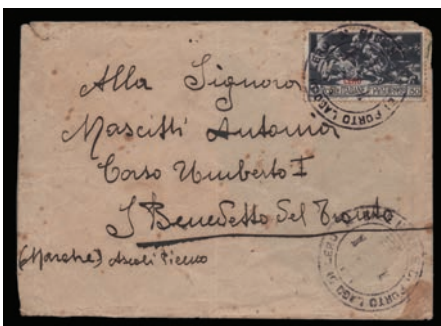 LERO
Alla Signora
Mascitti Antonia
Corso Umberto I
S Benedetto del Tronto
(Marche) Ascoli Piceno
PORTO LAGO DI LERO